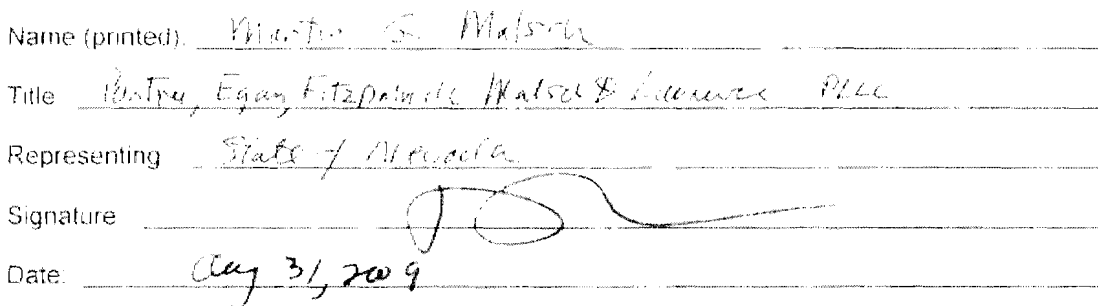 Name (printed). Martin G. Malsch
Title Partner, Egan, Fitzpatrick Malsch & Lawrence PLLC
Representing State of Nevada
Signature
Date. Aug 31, 2009